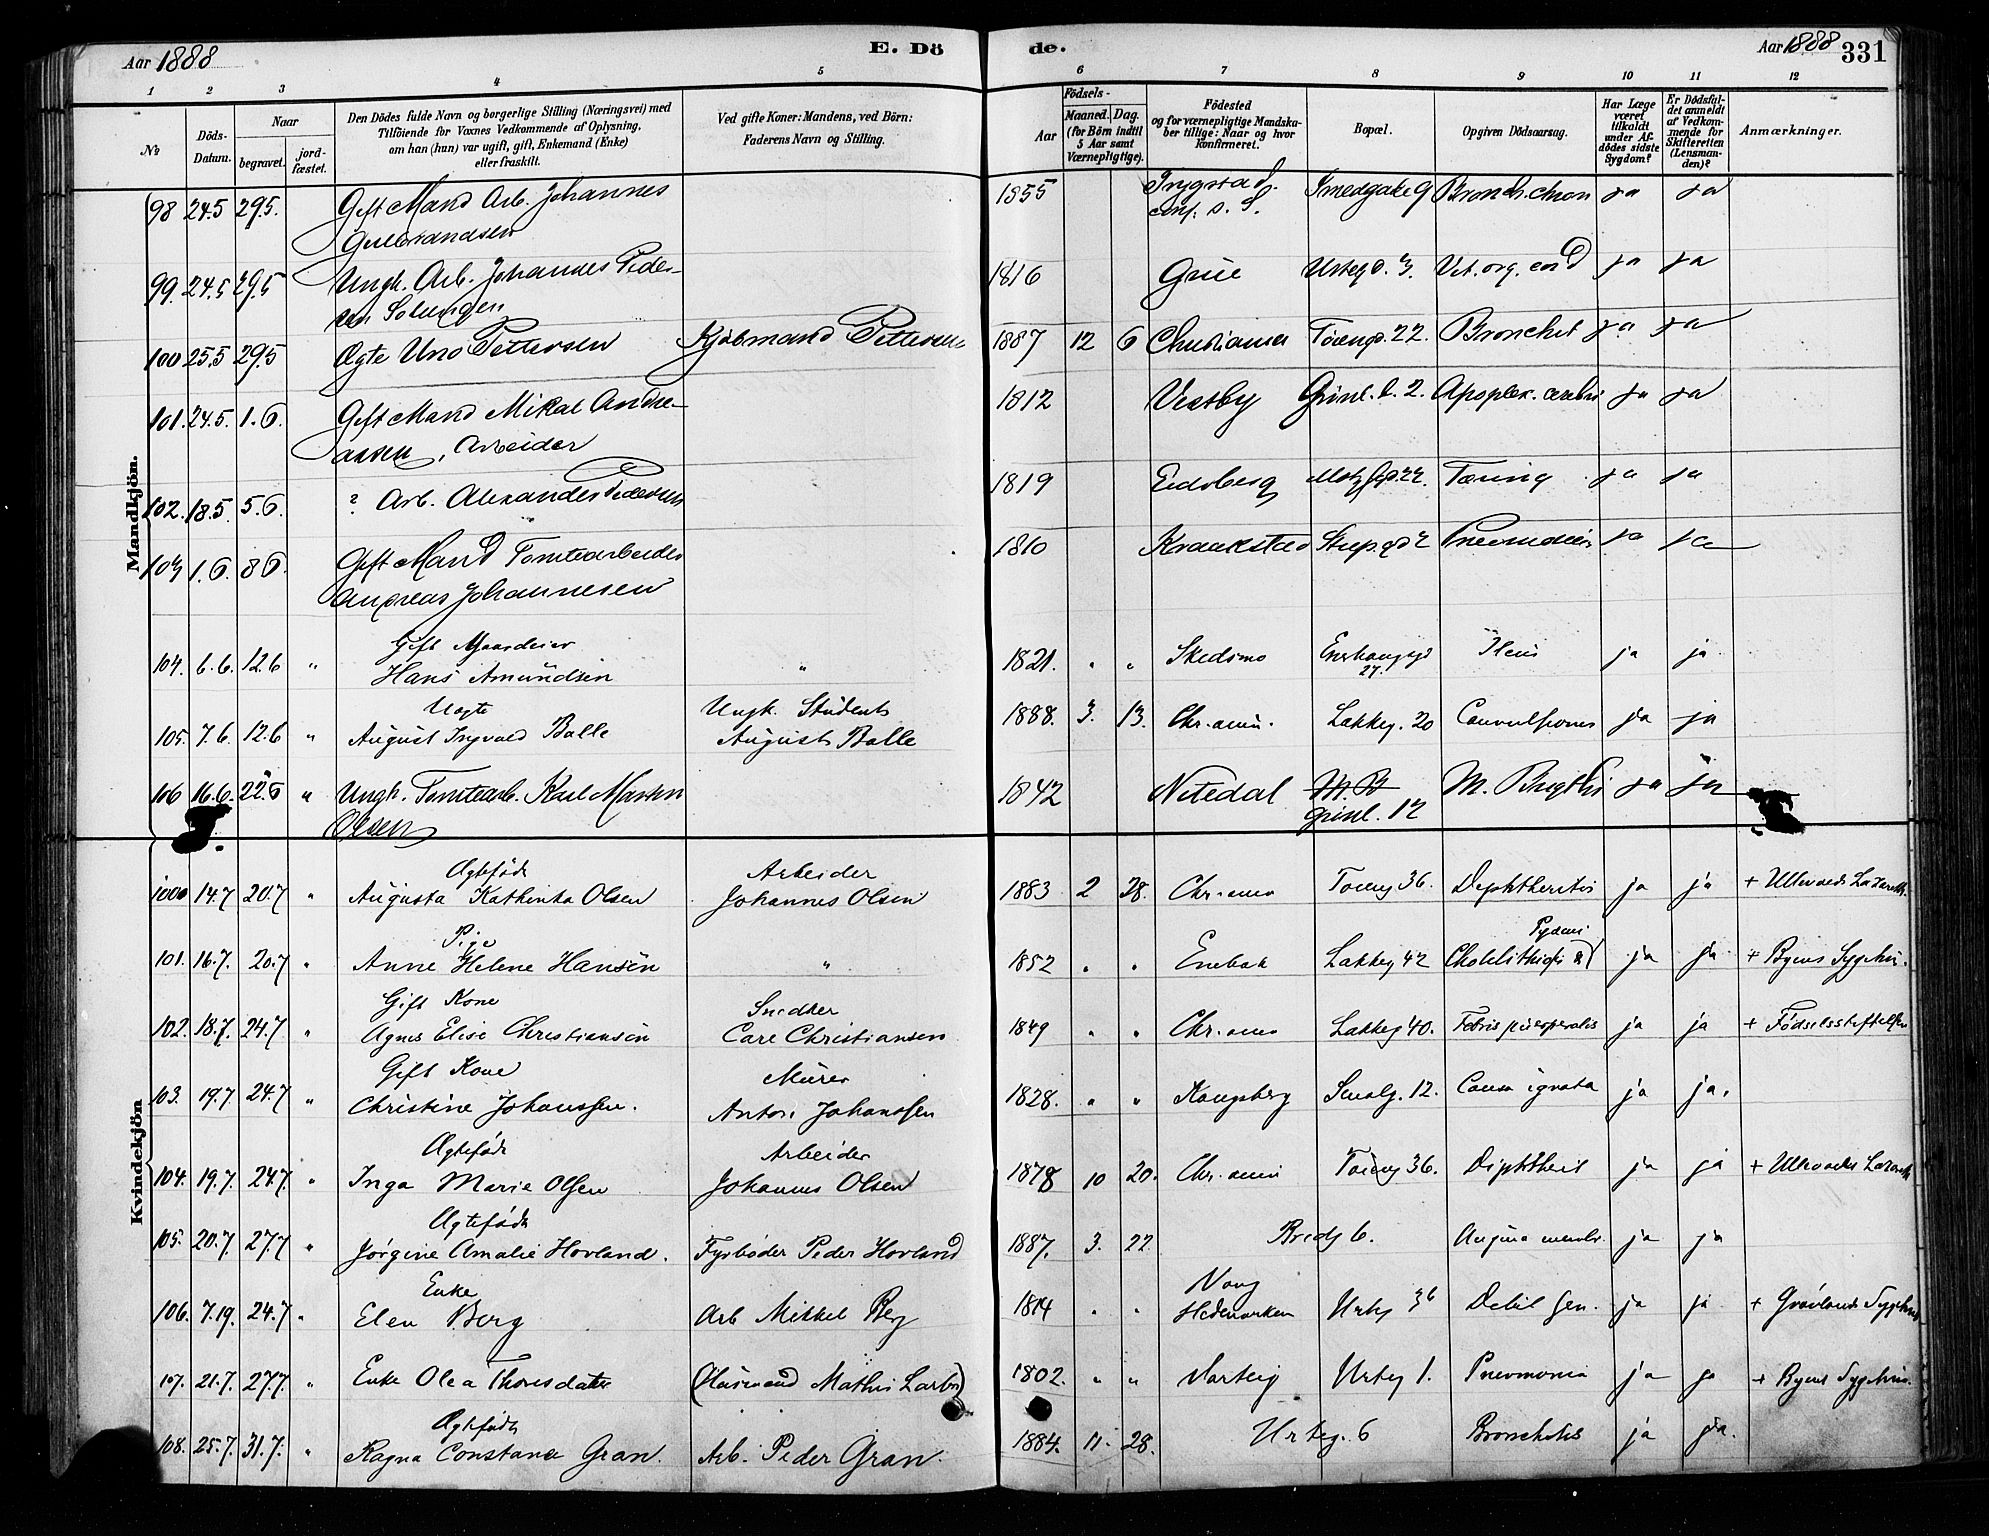 Aar 1888
E. Dö
de.
Aar 1888
331
1 2 3 4 5 6 7 8 9 10 11 12
No
Döds-Datum.
Naar
begravet.
jord-fæstet.
Den Dödes fulde Navn og borgerlige Stilling (Næringsvei) med
Tilföiende for Voxnes Vedkommende af Oplysning,
om han (hun) var ugift, gift, Enkemand (Enke)
eller fraskilt.
Ved gifte Koner: Mandens, ved Börn:
Faderens Navn og Stilling.
Födsels-
Aar
Maaned. Dag.
(for Börn indtil
5 Aar samt
Værnepligtige).
Födested
og for værnepligtige Mandska-
ber tillige: Naar og hvor
konfirmeret.
Bopæl.
Opgiven Dödsaarsag.
Har Læge
været
tilkaldt
under Af-
dödes sidste
Sygdom?
Er Dödsfal-
det anmeldt
af Vedkom-
mende for
Skifteretten
(Lensman-
den)?
Anmærkninger.
Mandkjön.
98 24.5 29.5. Gift Mand Arb. Johannes
Gulbrandsen
1855 Trygstad. conf. s. S. Smedgate 9 Bronch. chron ja ja
99. 24.5 29.5 Ungk. Arb. Johannes Peder-
sen Solungen
1816 Grue Urtegd. 3. Vit. org. cord ja ja
100 25.5 29.5 Ægte Uno Pettersen Kjøbmand Pettersen 1887 12 6 Christiania Töieng. 22. Bronchit ja ja
101. 24.5. 1.6. Gift Mand Mikal Andre-
assen, Arbeider
1812 Vestby Grönl. l. 2. Apoplex. cerebri ja ja
102. 18.5. 5.6. ? Arb. Alexander Pedersen 1819 Eidsberg Motzfgd. 22. Tæring ja ja
103 1.6. 8.6. Gift Mand Tomtearbeider
Andreas Johannesen
1810 Kraakstad ja ja
104. 6.6. 12.6 " Gift Gaardeier
Hans Amundsen
" 1821. " " Skedsmo Enerhaugsgd 27. Ileus ja ja
105. 7.6. 12.6 " Uægte
August Ingvald Balle
Ungk. Student
August Balle
1888. 3. 13. Chr.ania. Lakkeg. 20 Convulsiones ja ja
106 16.6. 22.6 " Ungk. Tomtearb. Karl Martin
Olsen
1842 Nitedal Grönl. 12 M. Brigthii ja ja
Kvindekjön
100 14.7 20.7 " Ægtefödt
Augusta Kathinka Olsen
Arbeider
Johannes Olsen
1883 2 28. Chr.ania Töieng 36. Diphtheritis ja ja + Ullevaals Lazareth.
101. 16.7. 20.7 " Pige
Anne Helene Hansen
" 1852 " " Enebak Lakkeg 42 Cholelithiasis ja ja + Byens Sygehus.
102. 18.7. 24.7 " Gift Kone
Agnes Elise Christiansen
Snedker
Carl Christiansen
1849 " " Chr.ania Lakkeg 40. Febris puerperalis ja ja + Födselsstiftelsen
103. 19.7 24.7 " Gift Kone
Christine Johanssen.
Murer
Anton Johanssen
1828. " " Kongsberg Smalg. 12. Causa ignota ja ja.
104. 19.7. 24.7. " Ægtefödt
Inga Marie Olsen
Arbeider
Johannes Olsen
1878 10 20. Chr.ania Töieng 36. Diphtherit ja ja + Ullevaals Lazareth
105. 20.7. 27.7 " Ægtefödt
Jørgine Amalie Hovland.
Fyrbøder Peder Hovland
1887. 3. 22. Bredg 6. Angina membr. ja ja
106. 7.19. 24.7 " Enke
Elen Berg
Arb Mikkel Berg
1814 " " Vang
Hedemarken Urteg 36 Debil sen. ja ja + Grönlands Sygehus
107. 21.7. 27.7. " Enke Olea Thoresdatter (Husmand Mathis Larsen) 1802. " " Varteig Urteg 1. Pneumonia ja ja + Byens Sygehus.
108. 25.7. 31.7. " Ægtefödt
Ragna Constance Gran.
Arb. Peder Gran.
1884. 11. 28. Urteg. 6 Bronchitis ja ja.